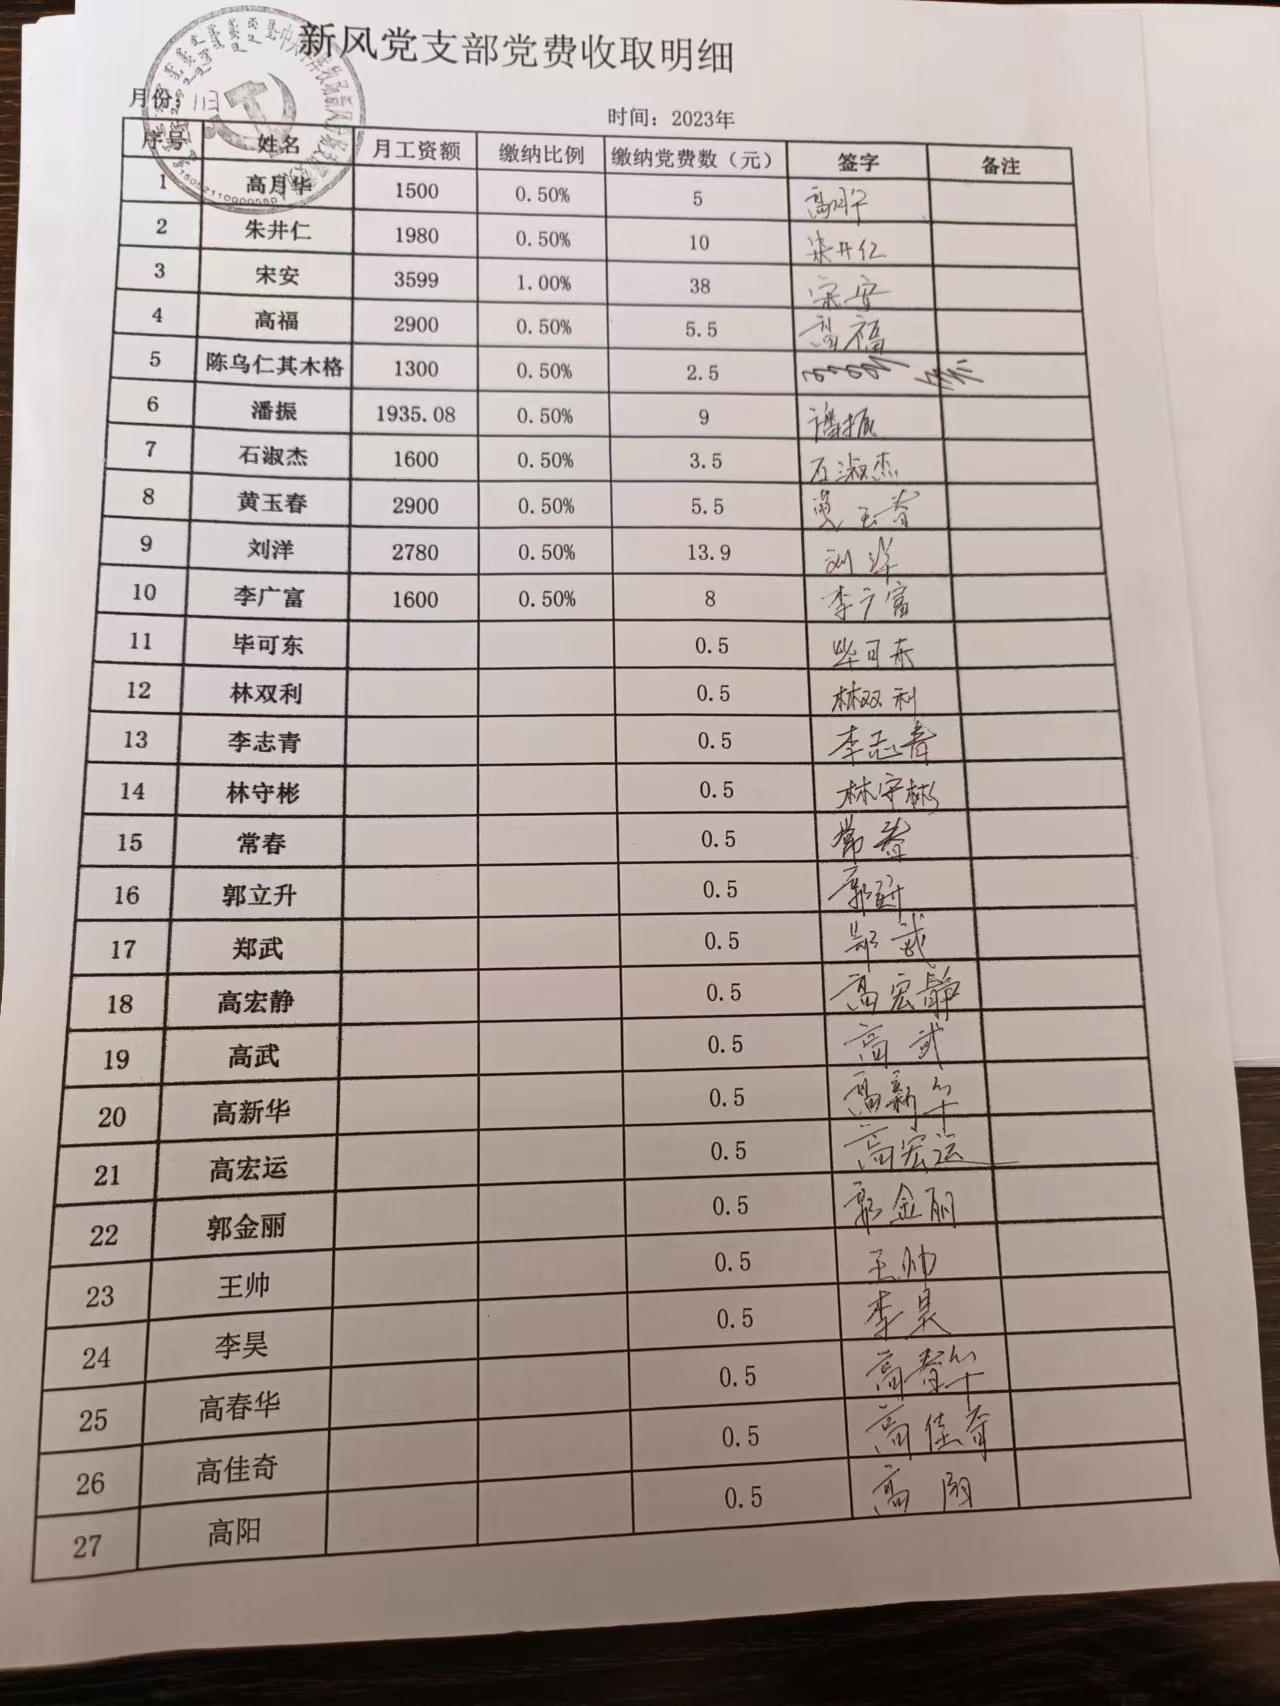 新风党支部党费收取明细
月份: 11月
时间：2023年
序号 姓名 月工资额 缴纳比例 缴纳党费数（元） 签字 备注
1 高月华 1500 0.50% 5 高月华
2 朱井仁 1980 0.50% 10 朱井仁
3 宋安 3599 1.00% 38 宋安
4 高福 2900 0.50% 5.5 高福
5 陈乌仁其木格 1300 0.50% 2.5
6 潘振 1935.08 0.50% 9 潘振
7 石淑杰 1600 0.50% 3.5 石淑杰
8 黄玉春 2900 0.50% 5.5 黄玉春
9 刘洋 2780 0.50% 13.9 刘洋
10 李广富 1600 0.50% 8 李广富
11 毕可东 0.5 毕可东
12 林双利 0.5 林双利
13 李志青 0.5 李志青
14 林守彬 0.5 林守彬
15 常春 0.5 常春
16 郭立升 0.5 郭立升
17 郑武 0.5 郑武
18 高宏静 0.5 高宏静
19 高武 0.5 高武
20 高新华 0.5 高新华
21 高宏运 0.5 高宏运
22 郭金丽 0.5 郭金丽
23 王帅 0.5 王帅
24 李昊 0.5 李昊
25 高春华 0.5 高春华
26 高佳奇 0.5 高佳奇
27 高阳 0.5 高阳